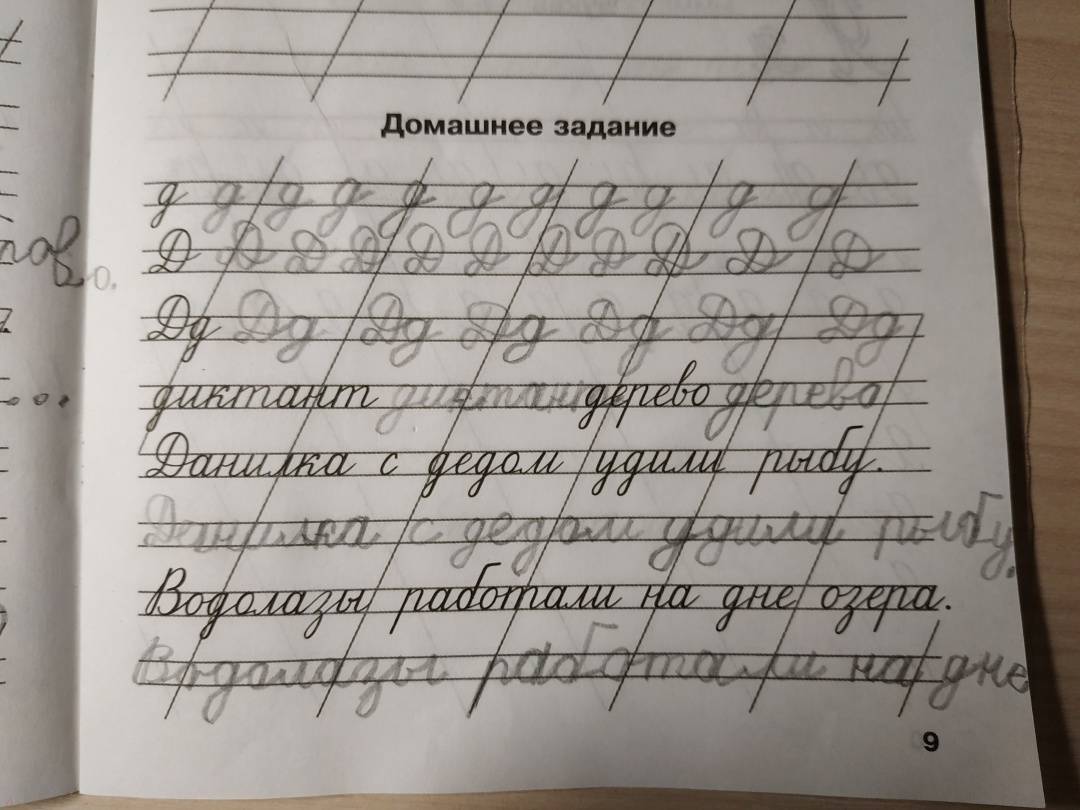 Домашнее задание
д д д д д д д д д д д
Д Д Д Д Д Д Д Д Д Д Д
Дд Дд Дд Дд Дд Дд Дд
диктант диктант дерево дерево
Данилка с дедом удили рыбу.
Данилка с дедом удили рыбу.
Водолазы работали на дне озера.
Водолазы работали на дне
9